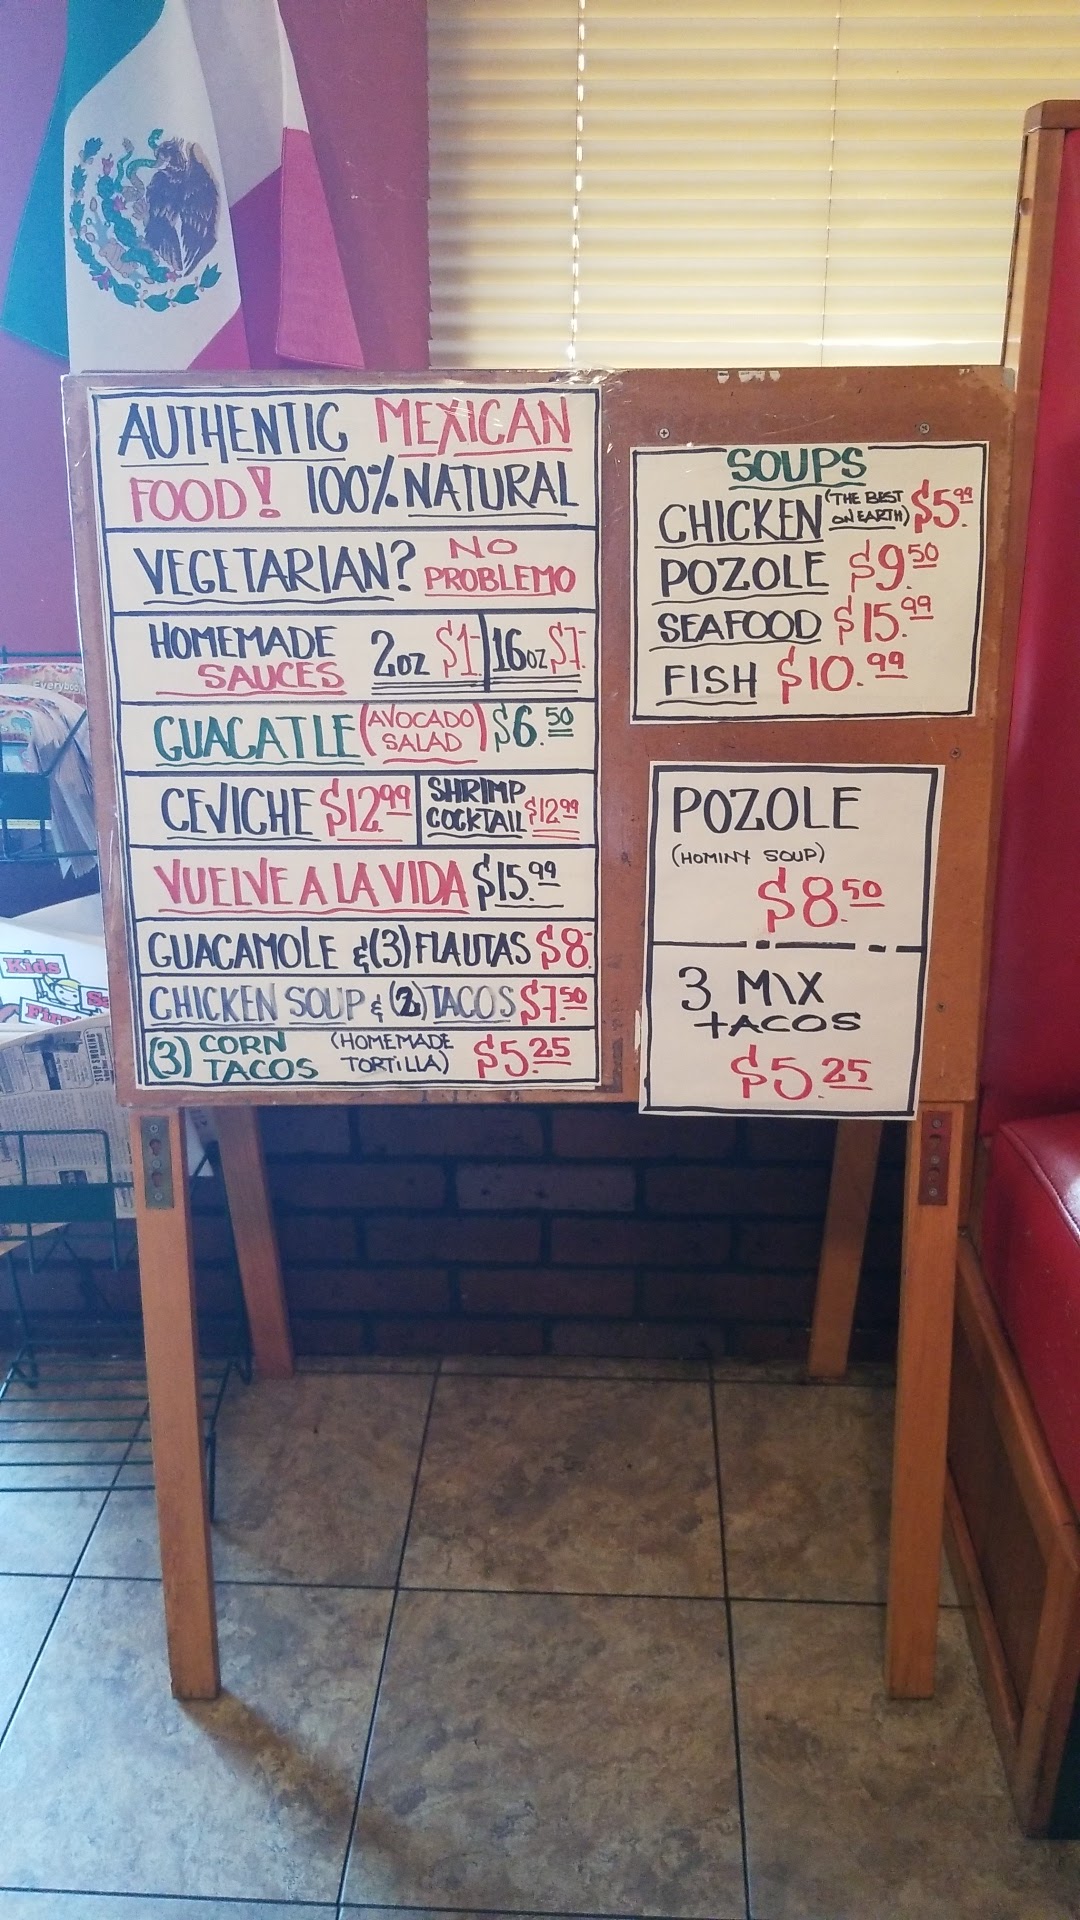 AUTHENTIC MEXICAN
FOOD! 100% NATURAL
VEGETARIAN? NO PROBLEMO
HOMEMADE SAUCES 2oz $1- 16oz $7-
GUACATLE (AVOCADO SALAD) $6.50
CEVICHE $12.99 SHRIMP COCKTAIL $12.99
VUELVE A LA VIDA $15.99
GUACAMOLE & (3) FLAUTAS $8-
CHICKEN SOUP & (2) TACOS $7.50
(3) CORN TACOS (HOMEMADE TORTILLA) $5.25
SOUPS
CHICKEN (THE BEST ON EARTH) $5.99
POZOLE $9.50
SEAFOOD $15.99
FISH $10.99
POZOLE
(HOMINY SOUP)
$8.50
3 MIX
TACOS
$5.25
Kids